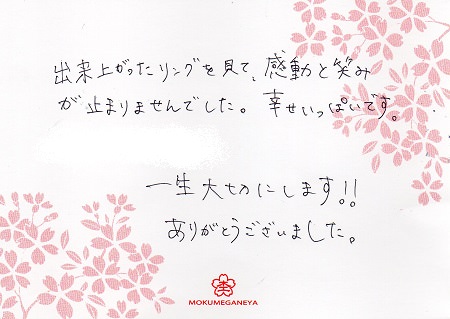 出来上がったリングを見て、感動と笑み
が止まりませんでした。幸せいっぱいです。
一生大切にします!!
ありがとうございました。
MOKUMEGANEYA